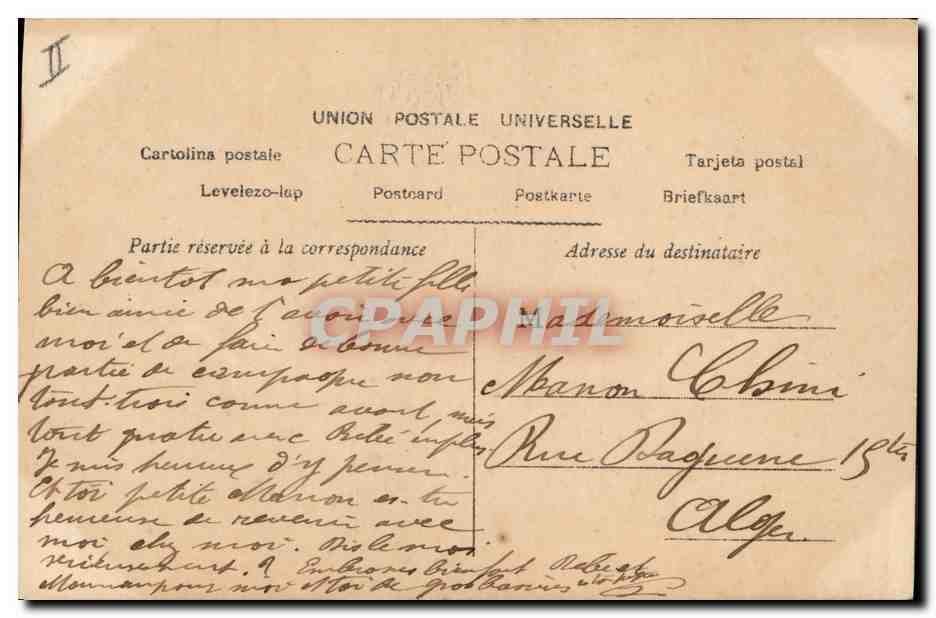 II
UNION POSTALE UNIVERSELLE
CARTE POSTALE
Cartolina postale
Tarjeta postal
Levelezo-lap
Postcard
Postkarte
Briefkaart
Partie réservée à la correspondance
A bientot ma petite fille
bien aimée de t'avoir avec
moi et de faire de bonne
partie de campagne non
tout-trois comme avant, mais
tout quatre avec Bébé en plus
Je suis heureux d'y penser
Et toi petite Manon es-tu
heureuse de revenir avec
moi chez moi. Dis le moi
sérieusement. ? Embrasses bien fort Bébé et
Maman pour moi et toi de gros baisers
Adresse du destinataire
Mademoiselle
Manon Chini
Rue 15 ter
Alger
CPAPHIL